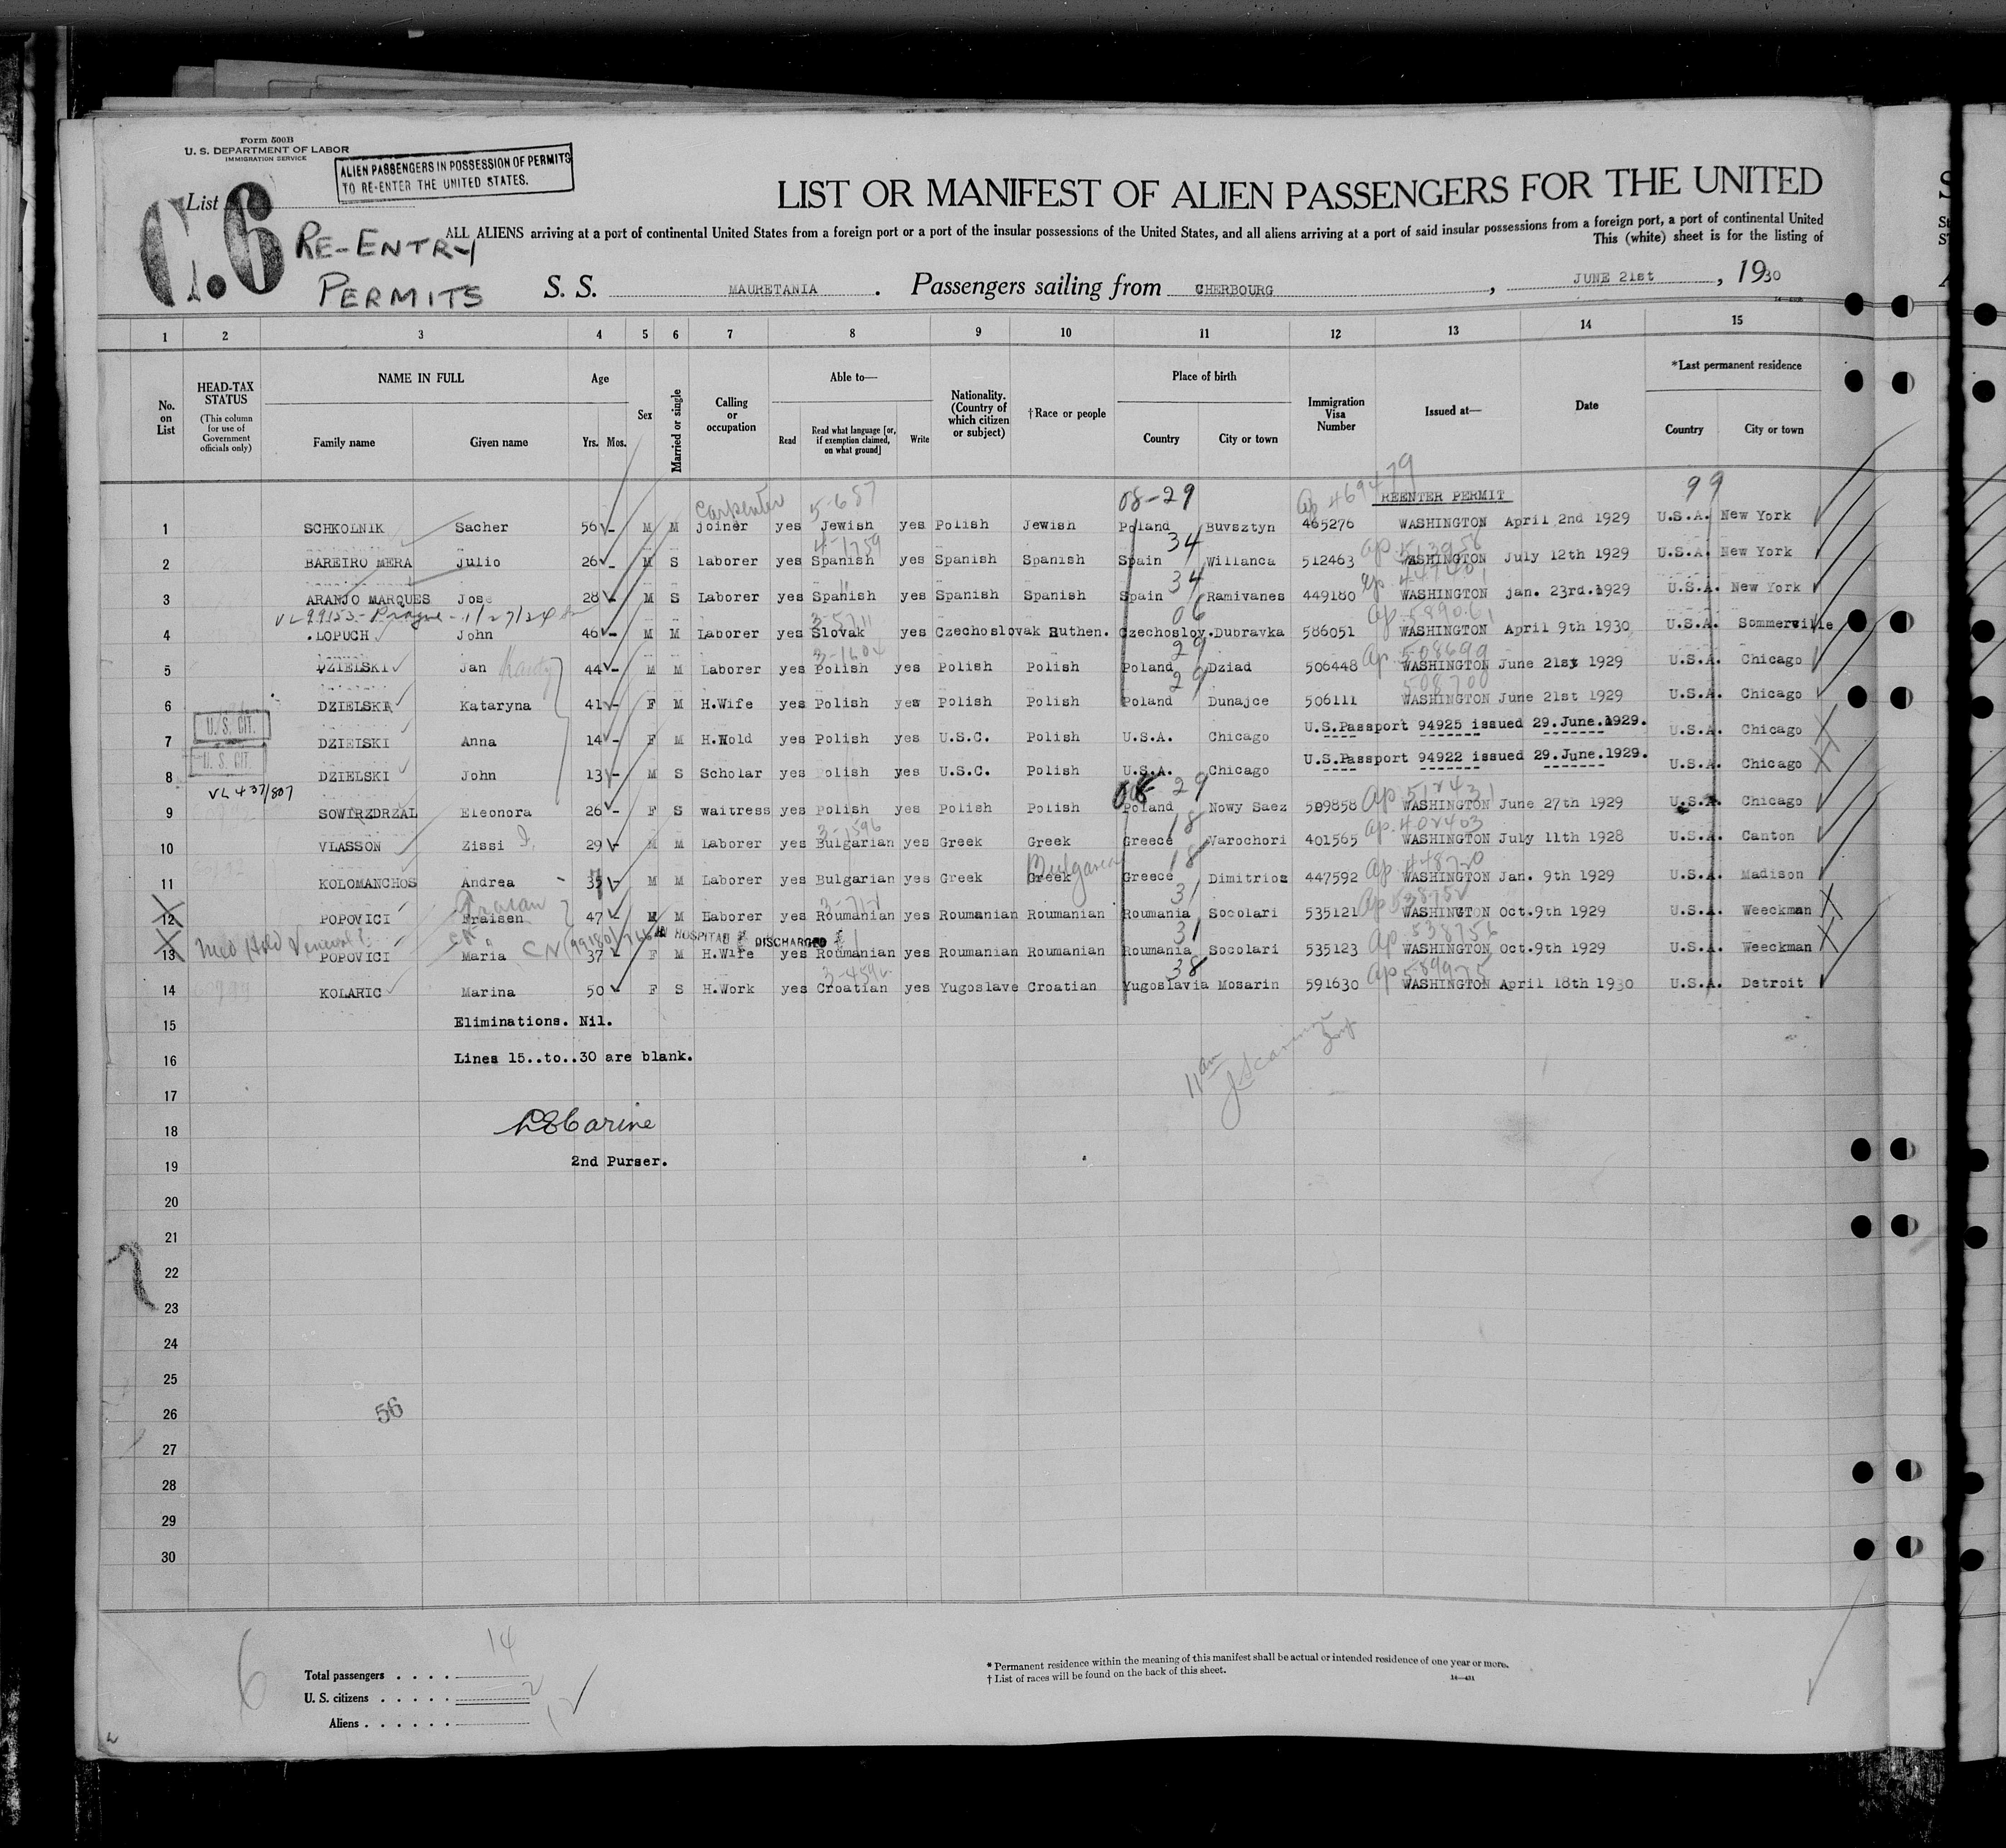 Form 500B
U. S. DEPARTMENT OF LABOR
IMMIGRATION SERVICE
ALIEN PASSENGERS IN POSSESSION OF PERMITS
TO RE-ENTER THE UNITED STATES.
List
C.6
RE-ENTRY
PERMITS
LIST OR MANIFEST OF ALIEN PASSENGERS FOR THE UNITED
ALL ALIENS arriving at a port of continental United States from a foreign port or a port of the insular possessions of the United States, and all aliens arriving at a port of said insular possessions from a foreign port, a port of continental United
This (white) sheet is for the listing of
S. S. MAURETANIA . Passengers sailing from CHERBOURG , JUNE 21st , 1930
1 2 3 4 5 6 7 8 9 10 11 12 13 14 15
No. on List
HEAD-TAX STATUS (This column for use of Government officials only)
NAME IN FULL
Family name Given name
Age
Yrs. Mos.
Sex
Married or single
Calling or occupation
Able to—
Read
Read what language [or, if exemption claimed, on what ground]
Write
Nationality. (Country of which citizen or subject)
†Race or people
Place of birth
Country City or town
Immigration Visa Number
Issued at—
Date
*Last permanent residence
Country City or town
Carpenter 5-687 08-29 ap 469479 REENTER PERMIT 99
1 SCHKOLNIK Sacher 56 M M joiner yes Jewish yes Polish Jewish Poland Buvsztyn 465276 WASHINGTON April 2nd 1929 U.S.A. New York
4-1759 34 ap 513958
2 BAREIRO MERA Julio 26 M S laborer yes Spanish yes Spanish Spanish Spain Willanca 512463 WASHINGTON July 12th 1929 U.S.A. New York
" 34
3 ARANJO MARQUES Jose 28 M S Laborer yes Spanish yes Spanish Spanish Spain Ramivanes 449180 WASHINGTON jan. 23rd.1929 U.S.A. New York
VL 99153 - Prague - 11/27/24 3-5711 06 ap 589061
4 .LOPUCH John 46 M M Laborer yes Slovak yes Czechoslovak Ruthen. Czechoslov. Dubravka 586051 WASHINGTON April 9th 1930 U.S.A. Sommerville
3-1604 29 ap 508699
5 DZIELSKI Jan 44 M M Laborer yes Polish yes Polish Polish Poland Dziad 506448 WASHINGTON June 21st 1929 U.S.A. Chicago
29 508700
6 DZIELSKI Kataryna 41 F M H.Wife yes Polish yes Polish Polish Poland Dunajce 506111 WASHINGTON June 21st 1929 U.S.A. Chicago
U. S. CIT.
7 DZIELSKI Anna 14 F M H.Hold yes Polish yes U.S.C. Polish U.S.A. Chicago U.S.Passport 94925 issued 29.June.1929. U.S.A. Chicago
U. S. CIT.
8 DZIELSKI John 13 M S Scholar yes Polish yes U.S.C. Polish U.S.A. Chicago U.S.Passport 94922 issued 29.June.1929. U.S.A. Chicago
VL 437/807 08 29 ap 512431
9 SOWIRZDRZAL Eleonora 26 F S waitress yes Polish yes Polish Polish Poland Nowy Saez 509858 WASHINGTON June 27th 1929 U.S.A. Chicago
3-1596 18 ap. 402403
10 VLASSON Zissi 29 M M Laborer yes Bulgarian yes Greek Greek Greece Varochori 401565 WASHINGTON July 11th 1928 U.S.A. Canton
Bulgarian 18 ap 448720
11 KOLOMANCHOS Andrea 35 M M Laborer yes Bulgarian yes Greek Greek Greece Dimitrios 447592 WASHINGTON Jan. 9th 1929 U.S.A. Madison
3-712 31 ap 538752
12 POPOVICI Fraisen 47 M M Laborer yes Roumanian yes Roumanian Roumanian Roumania Socolari 535121 WASHINGTON Oct.9th 1929 U.S.A. Weeckman
Med Hold IN HOSPITAL DISCHARGED 31 ap 538756
13 POPOVICI Maria 37 F M H.Wife yes Roumanian yes Roumanian Roumanian Roumania Socolari 535123 WASHINGTON Oct.9th 1929 U.S.A. Weeckman
3-4596 38 ap 589975
14 KOLARIC Marina 50 F S H.Work yes Croatian yes Yugoslave Croatian Yugoslavia Mosarin 591630 WASHINGTON April 18th 1930 U.S.A. Detroit
15 Eliminations. Nil.
16 Lines 15..to..30 are blank.
17
18
19 2nd Purser.
20
21
22
23
24
25
26 56
27
28
29
30
6
Total passengers . . . . 14
U. S. citizens . . . . . 2
Aliens . . . . . . 12
* Permanent residence within the meaning of this manifest shall be actual or intended residence of one year or more.
† List of races will be found on the back of this sheet.
14—431